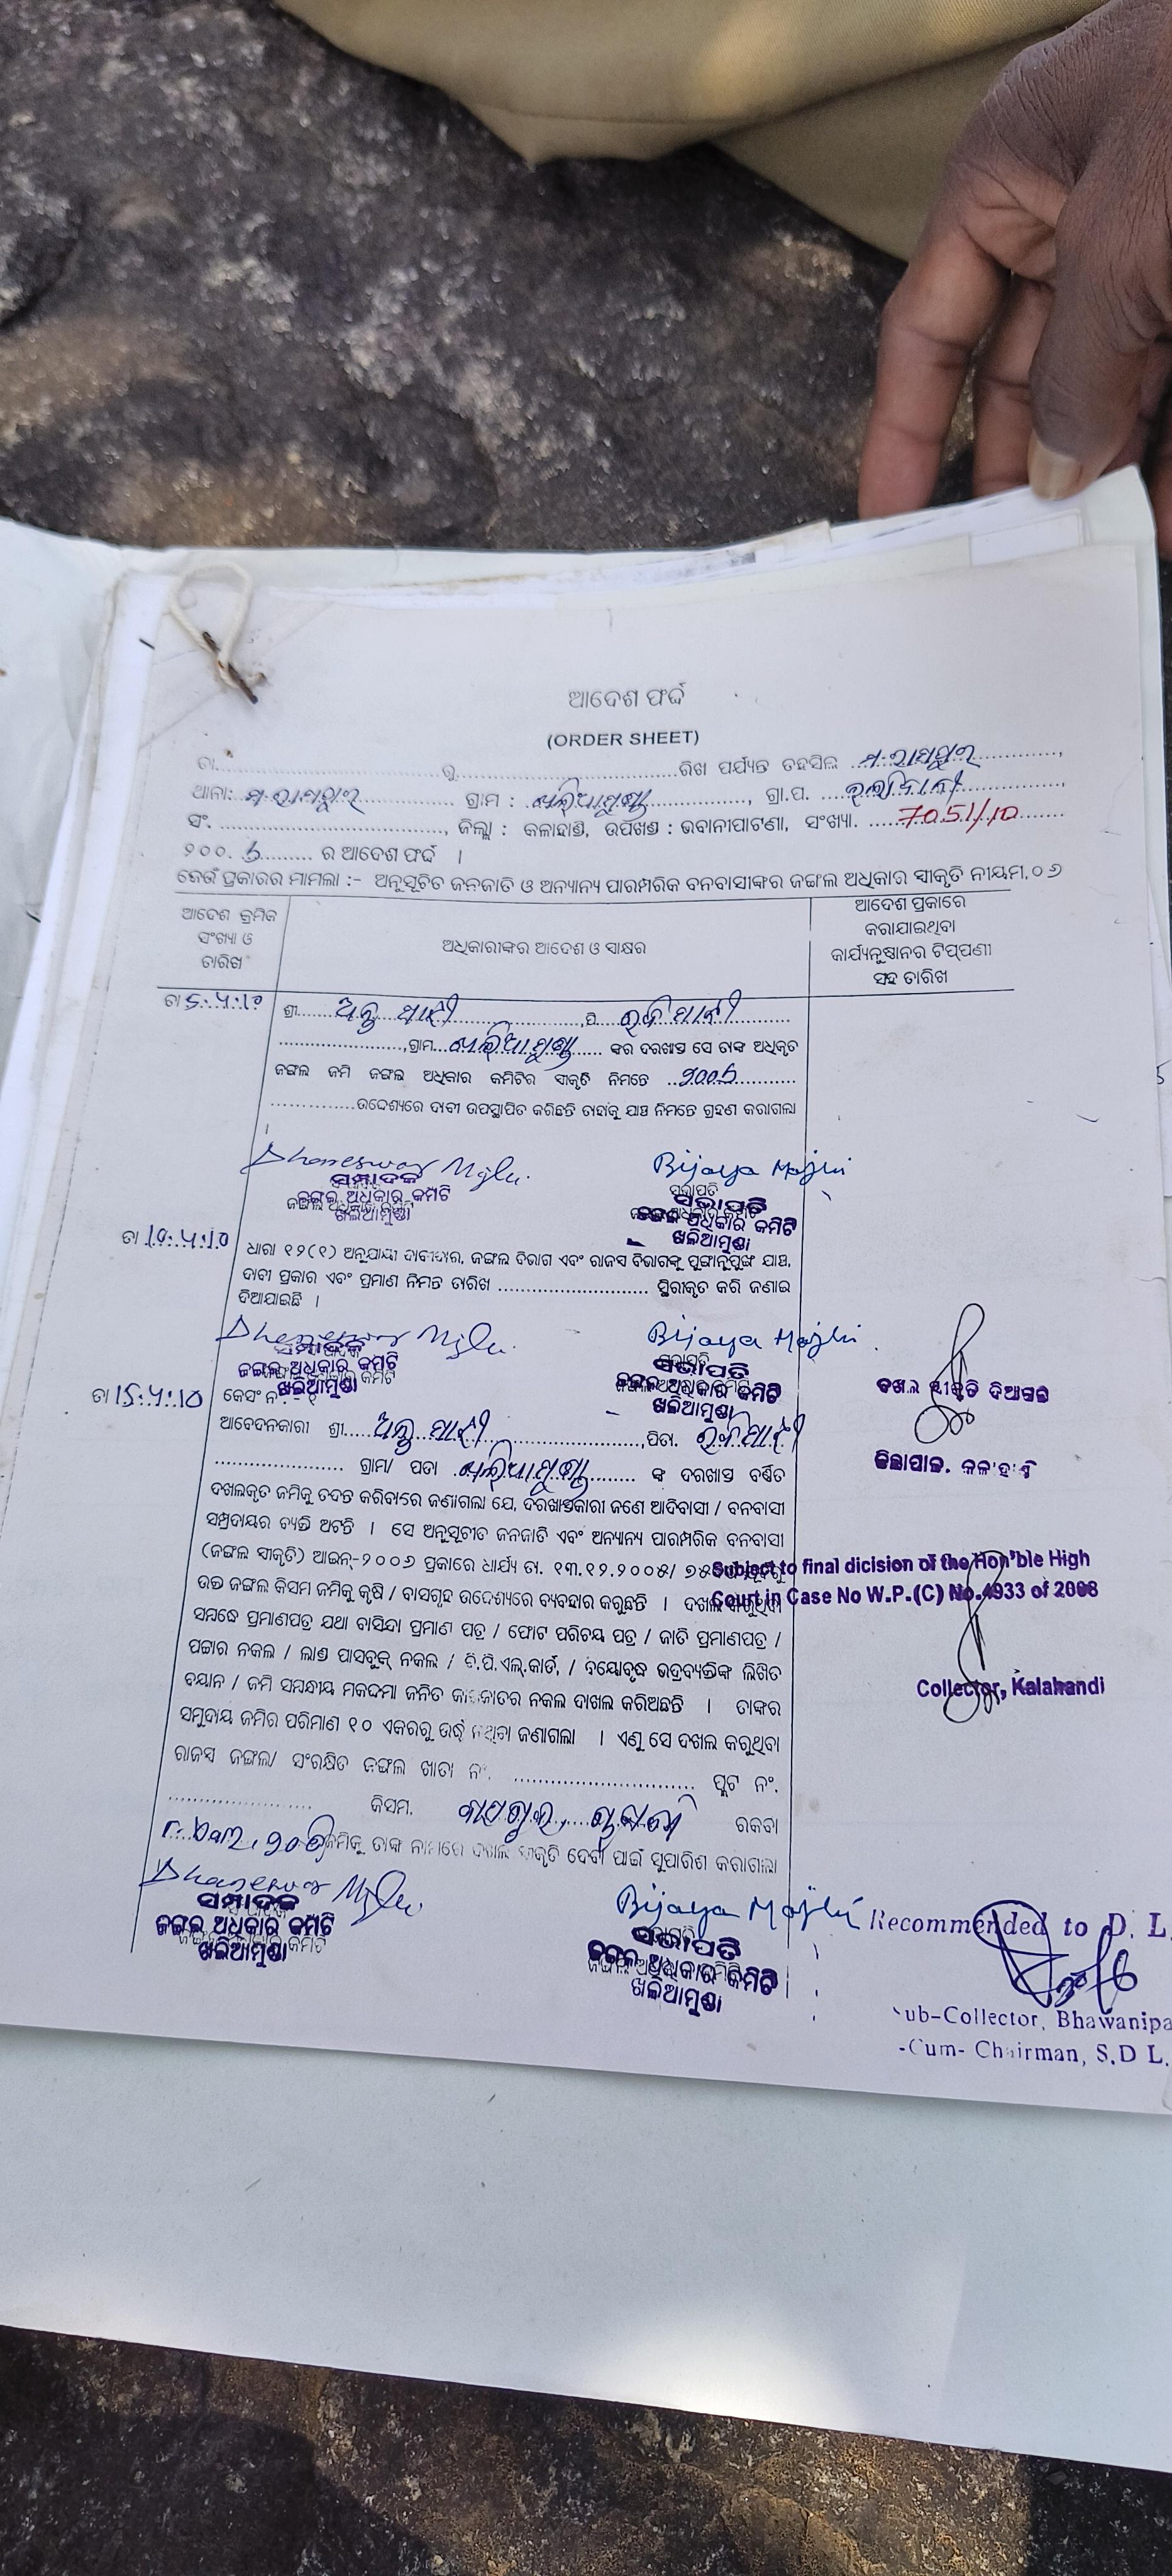 ଆଦେଶ ଫର୍ଦ୍ଦ
(ORDER SHEET)
ତା..............................ରୁ..............................ରିଖ ପର୍ଯ୍ୟନ୍ତ ତହସିଲ ମ.ରାମପୁର
ଥାନା: ମ.ରାମପୁର ଗ୍ରାମ : ଖଲିଆମୁଣ୍ଡା, ଗ୍ରା.ପ.
ସଂ. .............................., ଜିଲ୍ଲା : କଳାହାଣ୍ଡି, ଉପଖଣ୍ଡ : ଭବାନୀପାଟଣା, ସଂଖ୍ୟା. 7051/10
୨୦୦.୬......... ର ଆଦେଶ ଫର୍ଦ୍ଦ ।
କେଉଁ ପ୍ରକାରର ମାମଲା :- ଅନୁସୂଚିତ ଜନଜାତି ଓ ଅନ୍ୟାନ୍ୟ ପାରମ୍ପରିକ ବନବାସୀଙ୍କର ଜଙ୍ଗଲ ଅଧିକାର ସ୍ୱୀକୃତି ନୀୟମ.୦୬
ଆଦେଶ କ୍ରମିକ
ସଂଖ୍ୟା ଓ
ତାରିଖ
ଅଧିକାରୀଙ୍କର ଆଦେଶ ଓ ସାକ୍ଷର
ଆଦେଶ ପ୍ରକାରେ
କରାଯାଇଥିବା
କାର୍ଯ୍ୟନୁଷ୍ଠାନର ଟିପ୍ପଣୀ
ସହ ତାରିଖ
ତା 5.4.10
ଶ୍ରୀ..... ମାଝୀ ..........,ପି.
....................,ଗ୍ରାମ ଖଲିଆମୁଣ୍ଡା ଙ୍କର ଦରଖାସ୍ତ ସେ ତାଙ୍କ ଅଧିକୃତ
ଜଙ୍ଗଲ ଜମି ଜଙ୍ଗଲ ଅଧିକାର କମିଟିର ସ୍ୱୀକୃତି ନିମନ୍ତେ ..୨୦୦୬............
..............ଉଦ୍ଦେଶ୍ୟରେ ଦାବୀ ଉପସ୍ଥାପିତ କରିଛନ୍ତି ତାହାକୁ ଯାଞ୍ଚ ନିମନ୍ତେ ଗ୍ରହଣ କରାଗଲା
Dhaneswar Bijaya Majhi
ସମ୍ପାଦକ
ଜଙ୍ଗଲ ଅଧିକାର କମିଟି
ଖଲିଆମୁଣ୍ଡା
ସଭାପତି
ଜଙ୍ଗଲ ଅଧିକାର କମିଟି
ଖଲିଆମୁଣ୍ଡା
ତା 10.4.10
ଧାରା ୧୨(୧) ଅନୁଯାୟୀ ଦାବୀଦାର, ଜଙ୍ଗଲ ବିଭାଗ ଏବଂ ରାଜସ୍ୱ ବିଭାଗଙ୍କୁ ପୁଙ୍ଖାନୁପୁଙ୍ଖ ଯାଞ୍ଚ,
ଦାବୀ ପ୍ରକାର ଏବଂ ପ୍ରମାଣ ନିମନ୍ତେ ତାରିଖ .............................. ସ୍ଥିରୀକୃତ କରି ଜଣାଇ
ଦିଆଯାଇଛି ।
Dhaneswar Bijaya Majhi
ଜଙ୍ଗଲ ଅଧିକାର କମିଟି
ଖଲିଆମୁଣ୍ଡା
ସଭାପତି
ଜଙ୍ଗଲ ଅଧିକାର କମିଟି
ଖଲିଆମୁଣ୍ଡା
ଦଖଲ ସ୍ୱୀକୃତି ଦିଆଗଲା
ଜିଲ୍ଲାପାଳ, କଳାହାଣ୍ଡି
ତା 15.4.10
କେସ୍ ନଂ - ୧
ଆବେଦନକାରୀ ଶ୍ରୀ..... ମାଝୀ ..........,ପିତା.
.................... ଗ୍ରାମ/ ପଡା ଖଲିଆମୁଣ୍ଡା ଙ୍କ ଦରଖାସ୍ତ ବର୍ଣ୍ଣିତ
ଦଖଲକୃତ ଜମିକୁ ତଦନ୍ତ କରିବାରେ ଜଣାଗଲା ଯେ, ଦରଖାସ୍ତକାରୀ ଜଣେ ଆଦିବାସୀ / ବନବାସୀ
ସମ୍ପ୍ରଦାୟର ବ୍ୟକ୍ତି ଅଟନ୍ତି । ସେ ଅନୁସୂଚୀତ ଜନଜାତି ଏବଂ ଅନ୍ୟାନ୍ୟ ପାରମ୍ପରିକ ବନବାସୀ
(ଜଙ୍ଗଲ ସ୍ୱୀକୃତି) ଆଇନ୍-୨୦୦୬ ପ୍ରକାରେ ଧାର୍ଯ୍ୟ ତା. ୧୩.୧୨.୨୦୦୫/ ୭୫
Subject to final dicision of the Hon'ble High
ଉକ୍ତ ଜଙ୍ଗଲ କିସମ ଜମିକୁ କୃଷି / ବାସଗୃହ ଉଦ୍ଦେଶ୍ୟରେ ବ୍ୟବହାର କରୁଛନ୍ତି । ଦଖଲ କରୁଥିବା
Court in Case No W.P.(C) No.4933 of 2008
ସମ୍ବନ୍ଧେ ପ୍ରମାଣପତ୍ର ଯଥା ବାସିନ୍ଦା ପ୍ରମାଣ ପତ୍ର / ଫୋଟ ପରିଚୟ ପତ୍ର / ଜାତି ପ୍ରମାଣପତ୍ର /
ପଟ୍ଟାର ନକଲ / ଲାଣ୍ଡ ପାସବୁକ୍ ନକଲ / ବି.ପି.ଏଲ୍.କାର୍ଡ, / ବୟୋବୃଦ୍ଧ ଭଦ୍ରବ୍ୟକ୍ତିଙ୍କ ଲିଖିତ
ବୟାନ / ଜମି ସମ୍ବନ୍ଧୀୟ ମକଦ୍ଦମା ଜନିତ କାଗଜାତର ନକଲ ଦାଖଲ କରିଅଛନ୍ତି । ତାଙ୍କର
Collector, Kalahandi
ସମୁଦାୟ ଜମିର ପରିମାଣ ୧୦ ଏକରରୁ ଉର୍ଦ୍ଧ୍ୱ ନଥିବା ଜଣାଗଲା । ଏଣୁ ସେ ଦଖଲ କରୁଥିବା
ରାଜସ୍ୱ ଜଙ୍ଗଲ/ ସଂରକ୍ଷିତ ଜଙ୍ଗଲ ଖାତା ନଂ. .............................. ପ୍ଲଟ ନଂ.
.................... କିସମ. ରକବା
ଜମିକୁ ତାଙ୍କ ନାମରେ ଦଖଲ ସ୍ୱୀକୃତି ଦେବା ପାଇଁ ସୁପାରିଶ କରାଗଲା
Dhaneswar Bijaya Majhi
ସମ୍ପାଦକ
ଜଙ୍ଗଲ ଅଧିକାର କମିଟି
ଖଲିଆମୁଣ୍ଡା
ସଭାପତି
ଜଙ୍ଗଲ ଅଧିକାର କମିଟି
ଖଲିଆମୁଣ୍ଡା
Recommended to D. L.
ub-Collector, Bhawanipa
-Cum- Chairman, S.D L.